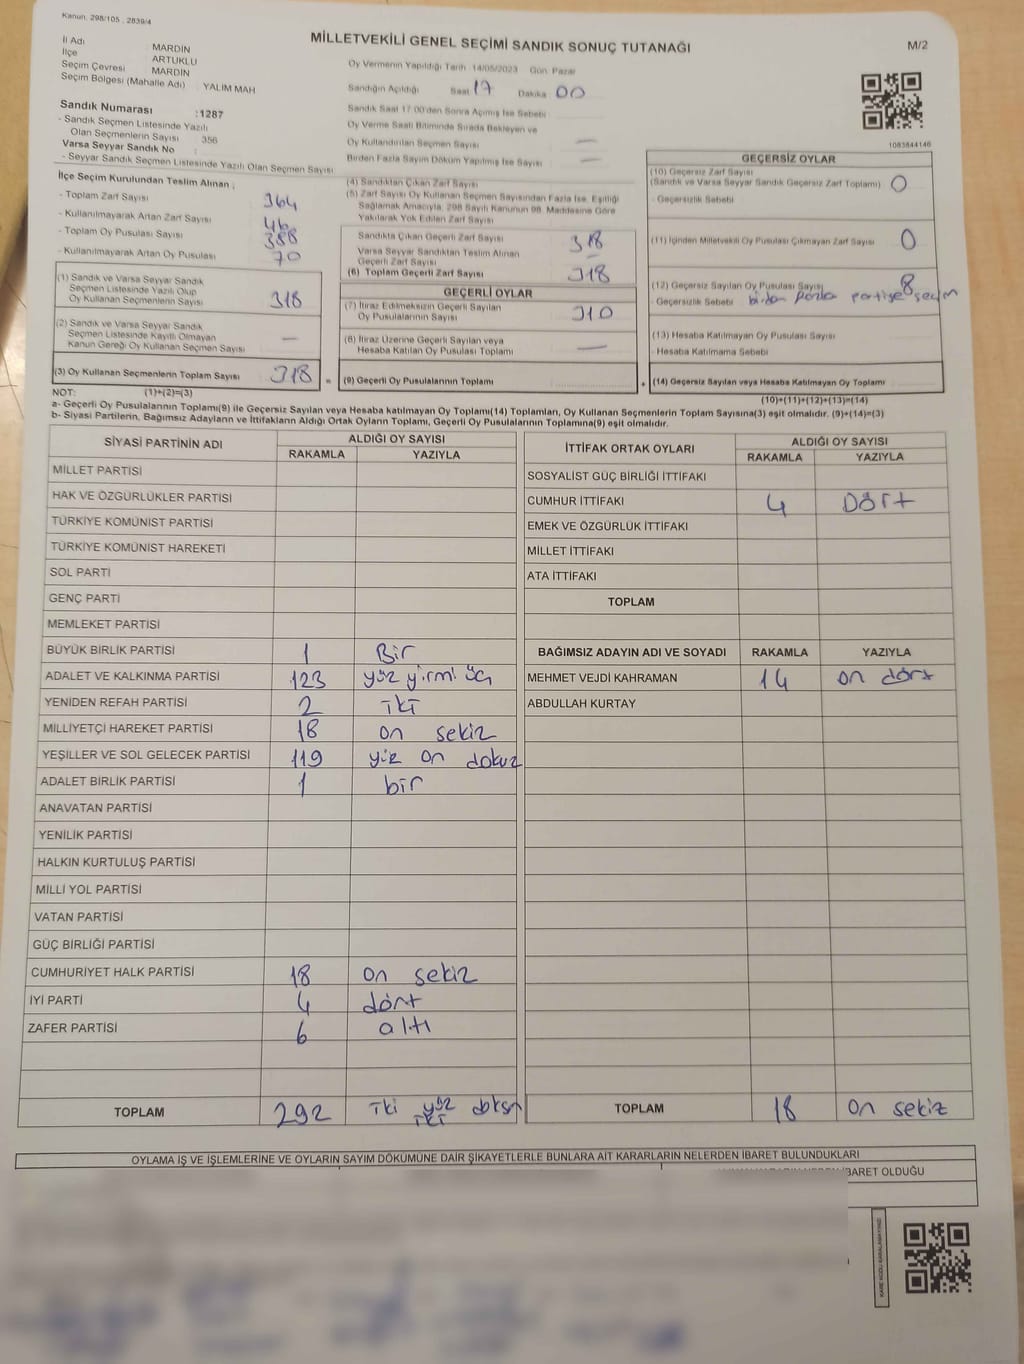 Kanun. 298/105 , 2839/4
MİLLETVEKİLİ GENEL SEÇİMİ SANDIK SONUÇ TUTANAĞI
M/2
İl Adı MARDİN
İlçe ARTUKLU
Seçim Çevresi MARDİN
Seçim Bölgesi (Mahalle Adı) : YALIM MAH
Sandık Numarası :1287
- Sandık Seçmen Listesinde Yazılı
Olan Seçmenlerin Sayısı : 356
Varsa Seyyar Sandık No :
- Seyyar Sandık Seçmen Listesinde Yazılı Olan Seçmen Sayısı
Oy Vermenin Yapıldığı Tarih 14/05/2023 Gün Pazar
Sandığın Açıldığı Saat 17 Dakika 00
Sandık Saat 17.00'den Sonra Açımış İse Sebebi
Oy Verme Saati Bitiminde Sırada Bekleyen ve
Oy Kullandırılan Seçmen Sayısı —
Birden Fazla Sayım Döküm Yapılmış İse Sayısı —
1083844146
İlçe Seçim Kurulundan Teslim Alınan ;
- Toplam Zarf Sayısı 364
- Kullanılmayarak Artan Zarf Sayısı 46
- Toplam Oy Pusulası Sayısı 388
- Kullanılmayarak Artan Oy Pusulası 70
(1) Sandık ve Varsa Seyyar Sandık
Seçmen Listesinde Yazılı Olup
Oy Kullanan Seçmenlerin Sayısı 318
(2) Sandık ve Varsa Seyyar Sandık
Seçmen Listesinde Kayıtlı Olmayan
Kanun Gereği Oy Kullanan Seçmen Sayısı —
(3) Oy Kullanan Seçmenlerin Toplam Sayısı 318 =
(4) Sandıktan Çıkan Zarf Sayısı
(5) Zarf Sayısı Oy Kullanan Seçmen Sayısından Fazla İse, Eşitliği
Sağlamak Amacıyla, 298 Sayılı Kanunun 98. Maddesine Göre
Yakılarak Yok Edilen Zarf Sayısı
Sandıkta Çıkan Geçerli Zarf Sayısı 318
Varsa Seyyar Sandıktan Teslim Alınan
Geçerli Zarf Sayısı —
(6) Toplam Geçerli Zarf Sayısı 318
GEÇERLİ OYLAR
(7) İtiraz Edilmeksizin Geçerli Sayılan
Oy Pusulalarının Sayısı 310
(8) İtiraz Üzerine Geçerli Sayılan veya
Hesaba Katılan Oy Pusulası Toplamı —
(9) Geçerli Oy Pusulalarının Toplamı +
GEÇERSİZ OYLAR
(10) Geçersiz Zarf Sayısı
(Sandık ve Varsa Seyyar Sandık Geçersiz Zarf Toplamı) 0
- Geçersizlik Sebebi
(11) İçinden Milletvekili Oy Pusulası Çıkmayan Zarf Sayısı 0
(12) Geçersiz Sayılan Oy Pusulası Sayısı 8
- Geçersizlik Sebebi birden fazla partiye seçim
(13) Hesaba Katılmayan Oy Pusulası Sayısı
- Hesaba Katılmama Sebebi
(14) Geçersiz Sayılan veya Hesaba Katılmayan Oy Toplamı
NOT: (1)+(2)=(3) (10)+(11)+(12)+(13)=(14)
a- Geçerli Oy Pusulalarının Toplamı(9) ile Geçersiz Sayılan veya Hesaba katılmayan Oy Toplamı(14) Toplamları, Oy Kullanan Seçmenlerin Toplam Sayısına(3) eşit olmalıdır. (9)+(14)=(3)
b- Siyasi Partilerin, Bağımsız Adayların ve İttifakların Aldığı Oyların Toplamı, Geçerli Oy Pusulalarının Toplamına(9) eşit olmalıdır.
SİYASİ PARTİNİN ADI ALDIĞI OY SAYISI
RAKAMLA YAZIYLA
MİLLET PARTİSİ
HAK VE ÖZGÜRLÜKLER PARTİSİ
TÜRKİYE KOMÜNİST PARTİSİ
TÜRKİYE KOMÜNİST HAREKETİ
SOL PARTİ
GENÇ PARTİ
MEMLEKET PARTİSİ
BÜYÜK BİRLİK PARTİSİ 1 Bir
ADALET VE KALKINMA PARTİSİ 123 yüz yirmi üç
YENİDEN REFAH PARTİSİ 2 iki
MİLLİYETÇİ HAREKET PARTİSİ 18 on sekiz
YEŞİLLER VE SOL GELECEK PARTİSİ 119 yüz on dokuz
ADALET BİRLİK PARTİSİ 1 bir
ANAVATAN PARTİSİ
YENİLİK PARTİSİ
HALKIN KURTULUŞ PARTİSİ
MİLLİ YOL PARTİSİ
VATAN PARTİSİ
GÜÇ BİRLİĞİ PARTİSİ
CUMHURİYET HALK PARTİSİ 18 on sekiz
İYİ PARTİ 4 dört
ZAFER PARTİSİ 6 altı
TOPLAM 292 iki yüz doksan
iki
İTTİFAK ORTAK OYLARI ALDIĞI OY SAYISI
RAKAMLA YAZIYLA
SOSYALİST GÜÇ BİRLİĞİ İTTİFAKI
CUMHUR İTTİFAKI 4 Dört
EMEK VE ÖZGÜRLÜK İTTİFAKI
MİLLET İTTİFAKI
ATA İTTİFAKI
TOPLAM
BAĞIMSIZ ADAYIN ADI VE SOYADI RAKAMLA YAZIYLA
MEHMET VEJDİ KAHRAMAN 14 on dört
ABDULLAH KURTAY
TOPLAM 18 on sekiz
OYLAMA İŞ VE İŞLEMLERİNE VE OYLARIN SAYIM DÖKÜMÜNE DAİR ŞİKAYETLERLE BUNLARA AİT KARARLARIN NELERDEN İBARET BULUNDUKLARI
İBARET OLDUĞU
KARE KODU KARALAMAYINIZ